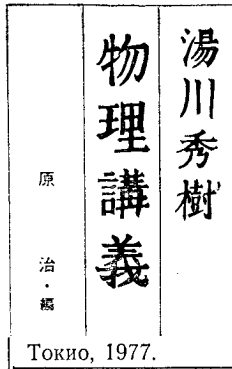 湯川秀樹
物理講義
原 治・編
Токио, 1977.